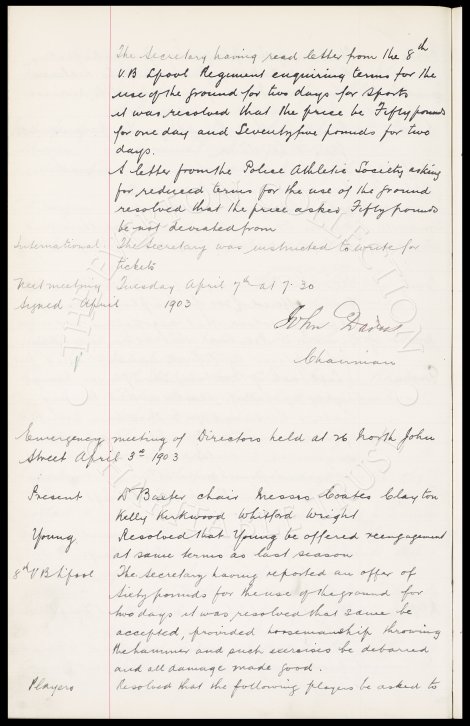 The Secretary having read letter from the 8th
V.B Lpool Regiment enquiring terms for the
use of the ground for two days for sports
it was resolved that the price be Fifty pounds
for one day and Seventyfive pounds for two
days.
A letter from the Police Athletic Society asking
for reduced terms for the use of the ground
resolved that the price asked Fifty pounds
be not deviated from
International. The Secretary was instructed to write for
tickets
Next meeting Tuesday April 7th at 7.30
Signed April 1903
John Davies
Chairman
Emergency meeting of Directors held at 26 North John
Street April 3rd 1903
Present Dr Baxter chair Messrs Coates Clayton
Kelly Kirkwood Whitford Wright
Young Resolved that Young be offered reengagement
at same terms as last season
8th V B Lpool The Secretary having reported an offer of
Sixty pounds for the use of the ground for
two days it was resolved that same be
accepted, provided horsemanship throwing
the hammer and such exercises be debarred
and all damage made good.
Players Resolved that the following players be asked to